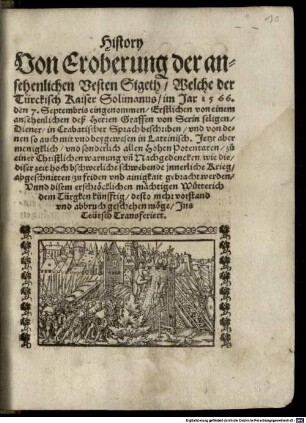 History
Von Eroberung der an-
sehenlichen Vesten Sigeth / Welche der
Türckisch Kaiser Solimanus / im Jar 1566.
den 7. Septembris eingenommen. Erstlichen von einem
ansehenlichen deß Herren Graffen von Serin seligen
Diener / in Crabatischer Sprach beschriben / und von de
nen so auch mit und dergewesen in Lateinisch. Jetz aber
menigklich / und sonderlich allen Hohen Potentaten / zu
einer Christlichen warnung uñ Nachgedencken wie die
diser zeit hoch bschwerliche schwebende jnnerliche Krieg /
abgeschnitten zu friden und ainigkait gebracht werden /
Vnnd disem erschröcklichen mächtigen Wütterich
dem Türgken künfftig / desto mehr vorstand
und abbruch geschehen möge / Jns
Teütsch Transferiert.